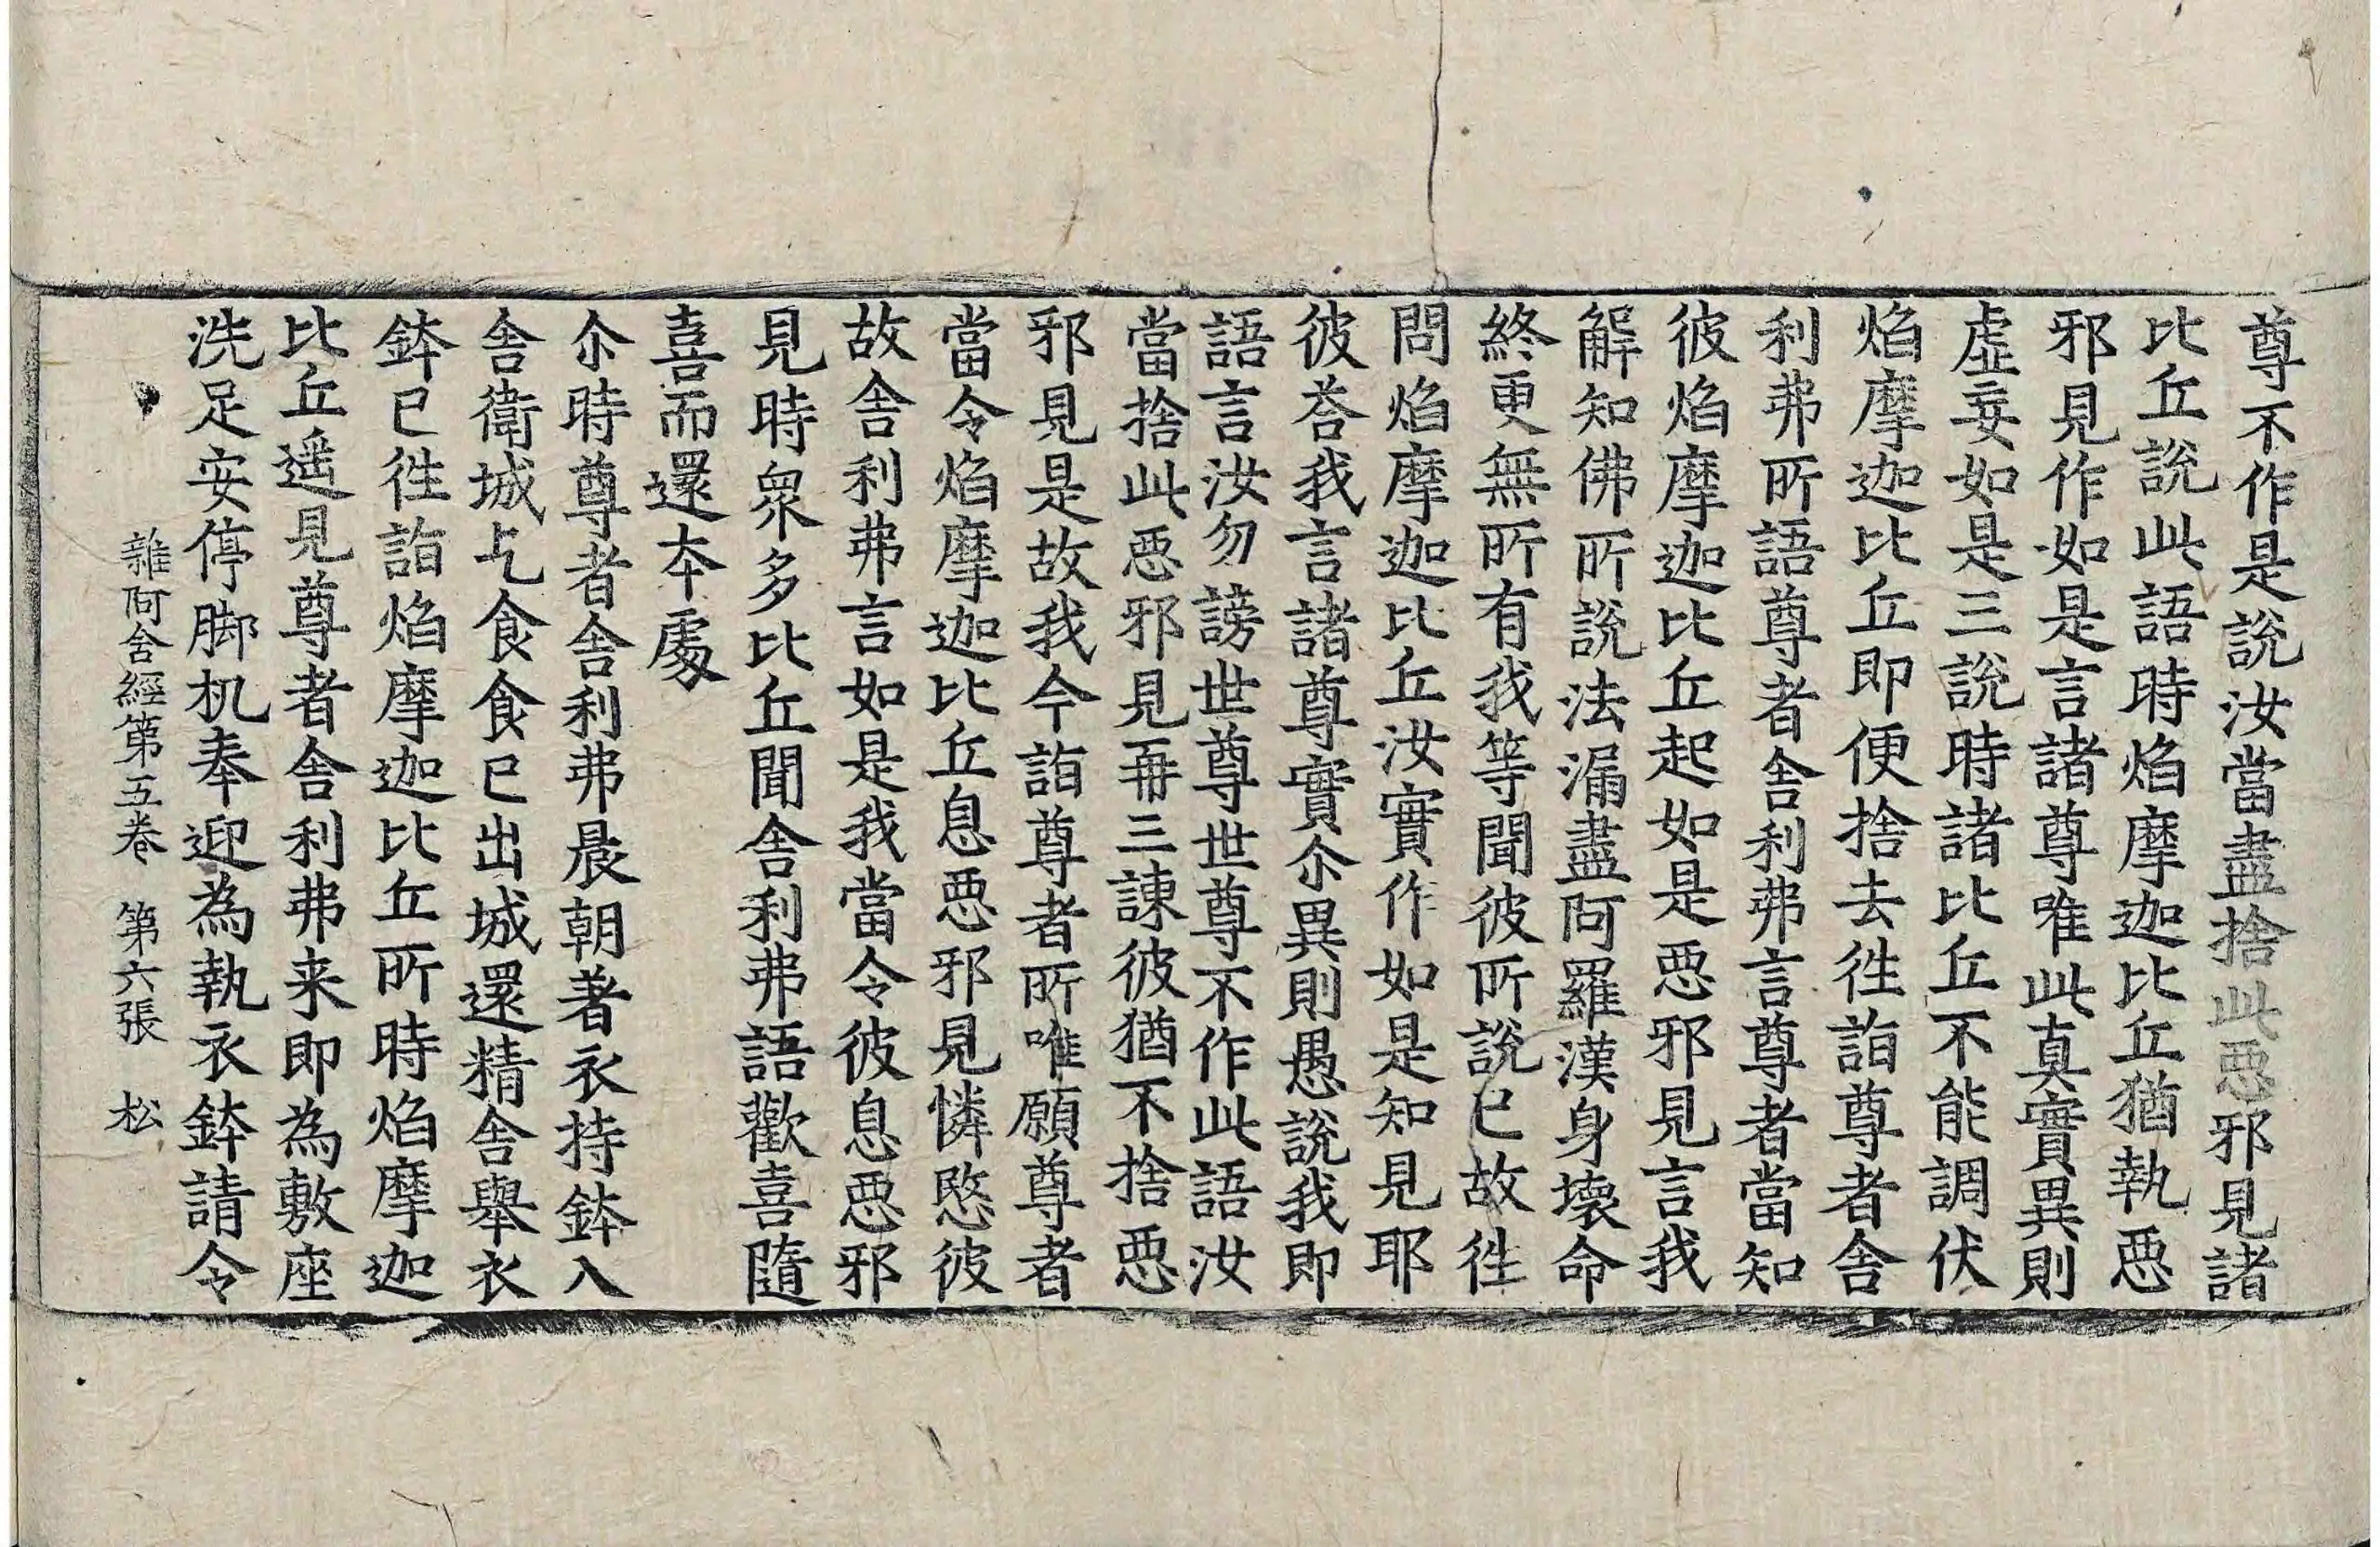 尊不作是說汝當盡捨此惡邪見諸
比丘說此語時焰摩迦比丘猶執惡
邪見作如是言諸尊唯此真實異則
虛妄如是三說時諸比丘不能調伏
焰摩迦比丘即便捨去往詣尊者舍
利弗所語尊者舍利弗言尊者當知
彼焰摩迦比丘起如是惡邪見言我
解知佛所說法漏盡阿羅漢身壞命
終更無所有我等聞彼所說已故往
問焰摩迦比丘汝實作如是知見耶
彼荅我言諸尊實尒異則愚說我即
語言汝勿謗世尊世尊不作此語汝
當捨此惡邪見再三諫彼猶不捨惡
邪見是故我今詣尊者所唯願尊者
當令焰摩迦比丘息惡邪見憐愍彼
故舍利弗言如是我當令彼息惡邪
見時眾多比丘聞舍利弗語歡喜隨
喜而還本處
尒時尊者舍利弗晨朝著衣持鉢入
舍衛城乞食食已出城還精舍舉衣
鉢已往詣焰摩迦比丘所時焰摩迦
比丘遥見尊者舍利弗来即為敷座
洗足安停脚机奉迎為執衣鉢請令
雜阿含經第五卷　第六張　松